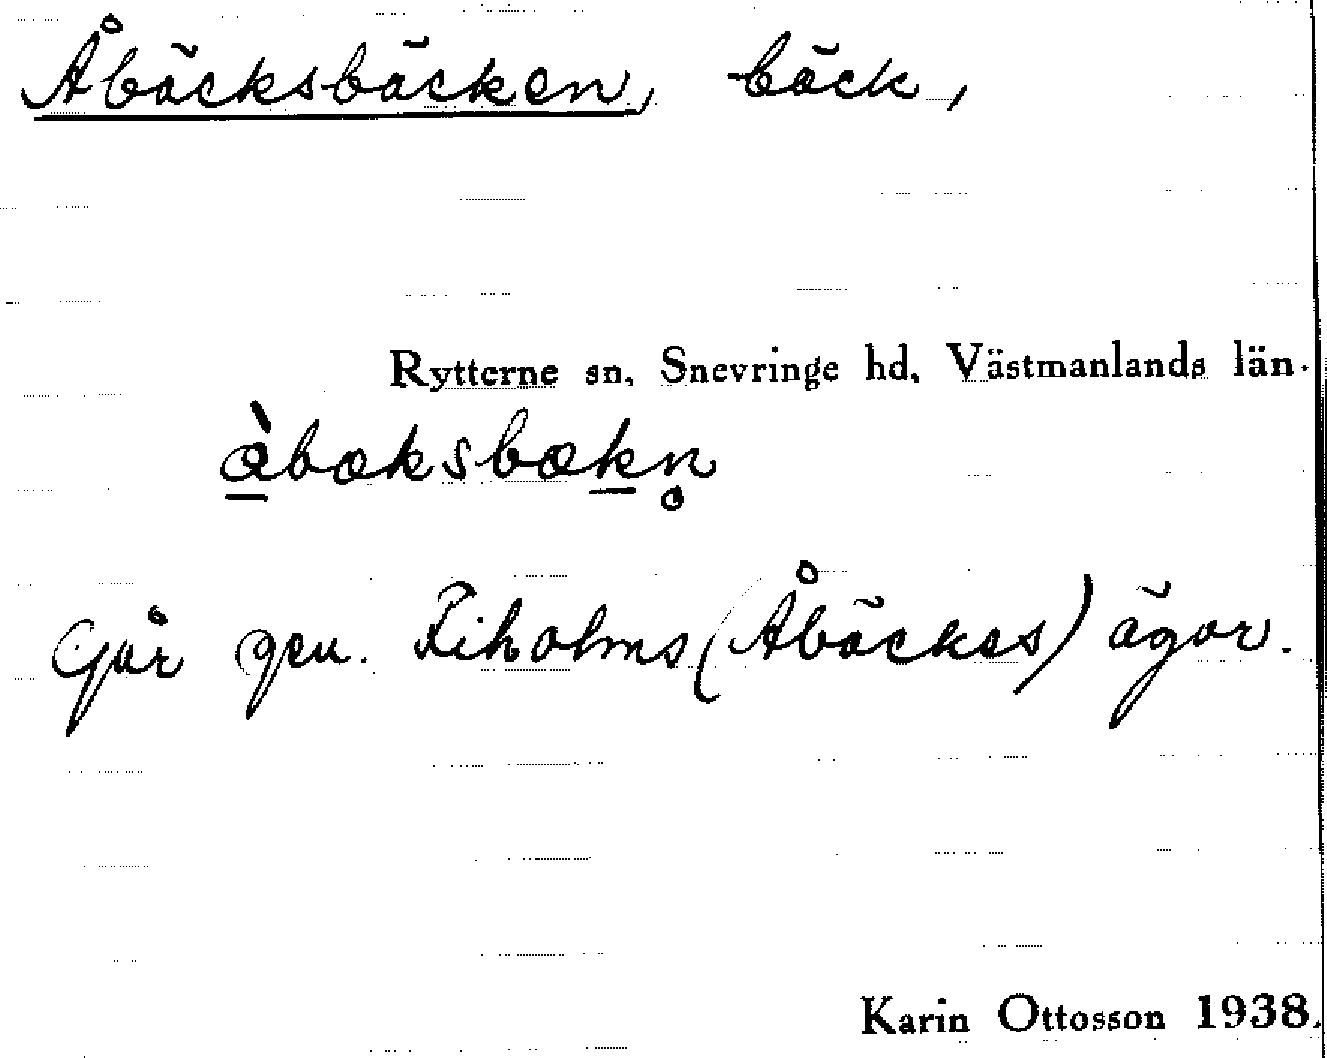 Åbäcksbäcken, bäck,
Rytterne sn, Snevringe hd, Västmanlands län.
åbæksbækn̥
Går gen. Fiholms (Åbäckes) ägor.
Karin Ottosson 1938.